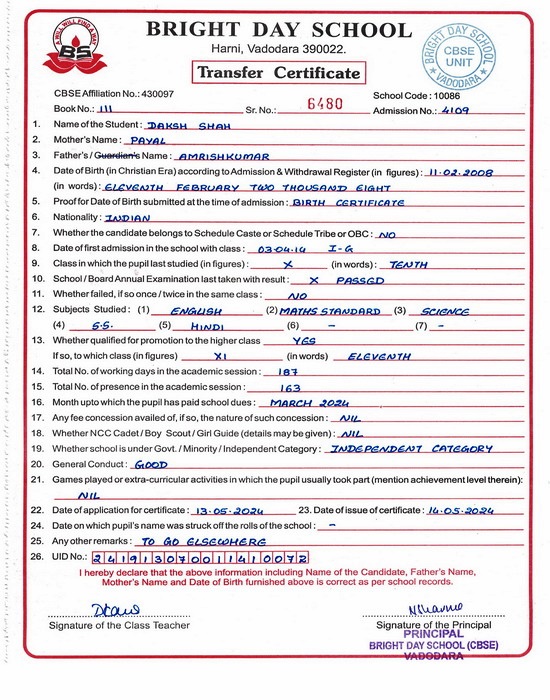 A WILL WILL FIND A WAY
BS
BRIGHT DAY SCHOOL
Harni, Vadodara 390022.
Transfer Certificate
BRIGHT DAY SCHOOL
CBSE
UNIT
VADODARA
CBSE Affiliation No.: 430097 School Code : 10086
Book No.: 111 Sr. No.: 6480 Admission No.: 4109
1. Name of the Student : DAKSH SHAH
2. Mother's Name : PAYAL
3. Father's / Guardian's Name : AMRISHKUMAR
4. Date of Birth (in Christian Era) according to Admission & Withdrawal Register (in figures) : 11.02.2008
(in words) : ELEVENTH FEBRUARY TWO THOUSAND EIGHT
5. Proof for Date of Birth submitted at the time of admission : BIRTH CERTIFICATE
6. Nationality : INDIAN
7. Whether the candidate belongs to Schedule Caste or Schedule Tribe or OBC : NO
8. Date of first admission in the school with class : 03.04.14 I-G
9. Class in which the pupil last studied (in figures) : X (in words) : TENTH
10. School / Board Annual Examination last taken with result : X PASSED
11. Whether failed, if so once / twice in the same class : NO
12. Subjects Studied : (1) ENGLISH (2) MATHS STANDARD (3) SCIENCE
(4) S.S. (5) HINDI (6) – (7) –
13. Whether qualified for promotion to the higher class YES
If so, to which class (in figures) XI (in words) ELEVENTH
14. Total No. of working days in the academic session : 187
15. Total No. of presence in the academic session : 163
16. Month upto which the pupil has paid school dues : MARCH 2024
17. Any fee concession availed of, if so, the nature of such concession : NIL
18. Whether NCC Cadet / Boy Scout / Girl Guide (details may be given) : NIL
19. Whether school is under Govt. / Minority / Independent Category : INDEPENDENT CATEGORY
20. General Conduct : GOOD
21. Games played or extra-curricular activities in which the pupil usually took part (mention achievement level therein):
NIL
22. Date of application for certificate : 13.05.2024 23. Date of issue of certificate : 14.05.2024
24. Date on which pupil's name was struck off the rolls of the school : –
25. Any other remarks : TO GO ELSEWHERE
26. UID No.: 241913070011410072
I hereby declare that the above information including Name of the Candidate, Father's Name,
Mother's Name and Date of Birth furnished above is correct as per school records.
Signature of the Class Teacher Signature of the Principal
PRINCIPAL
BRIGHT DAY SCHOOL (CBSE)
VADODARA